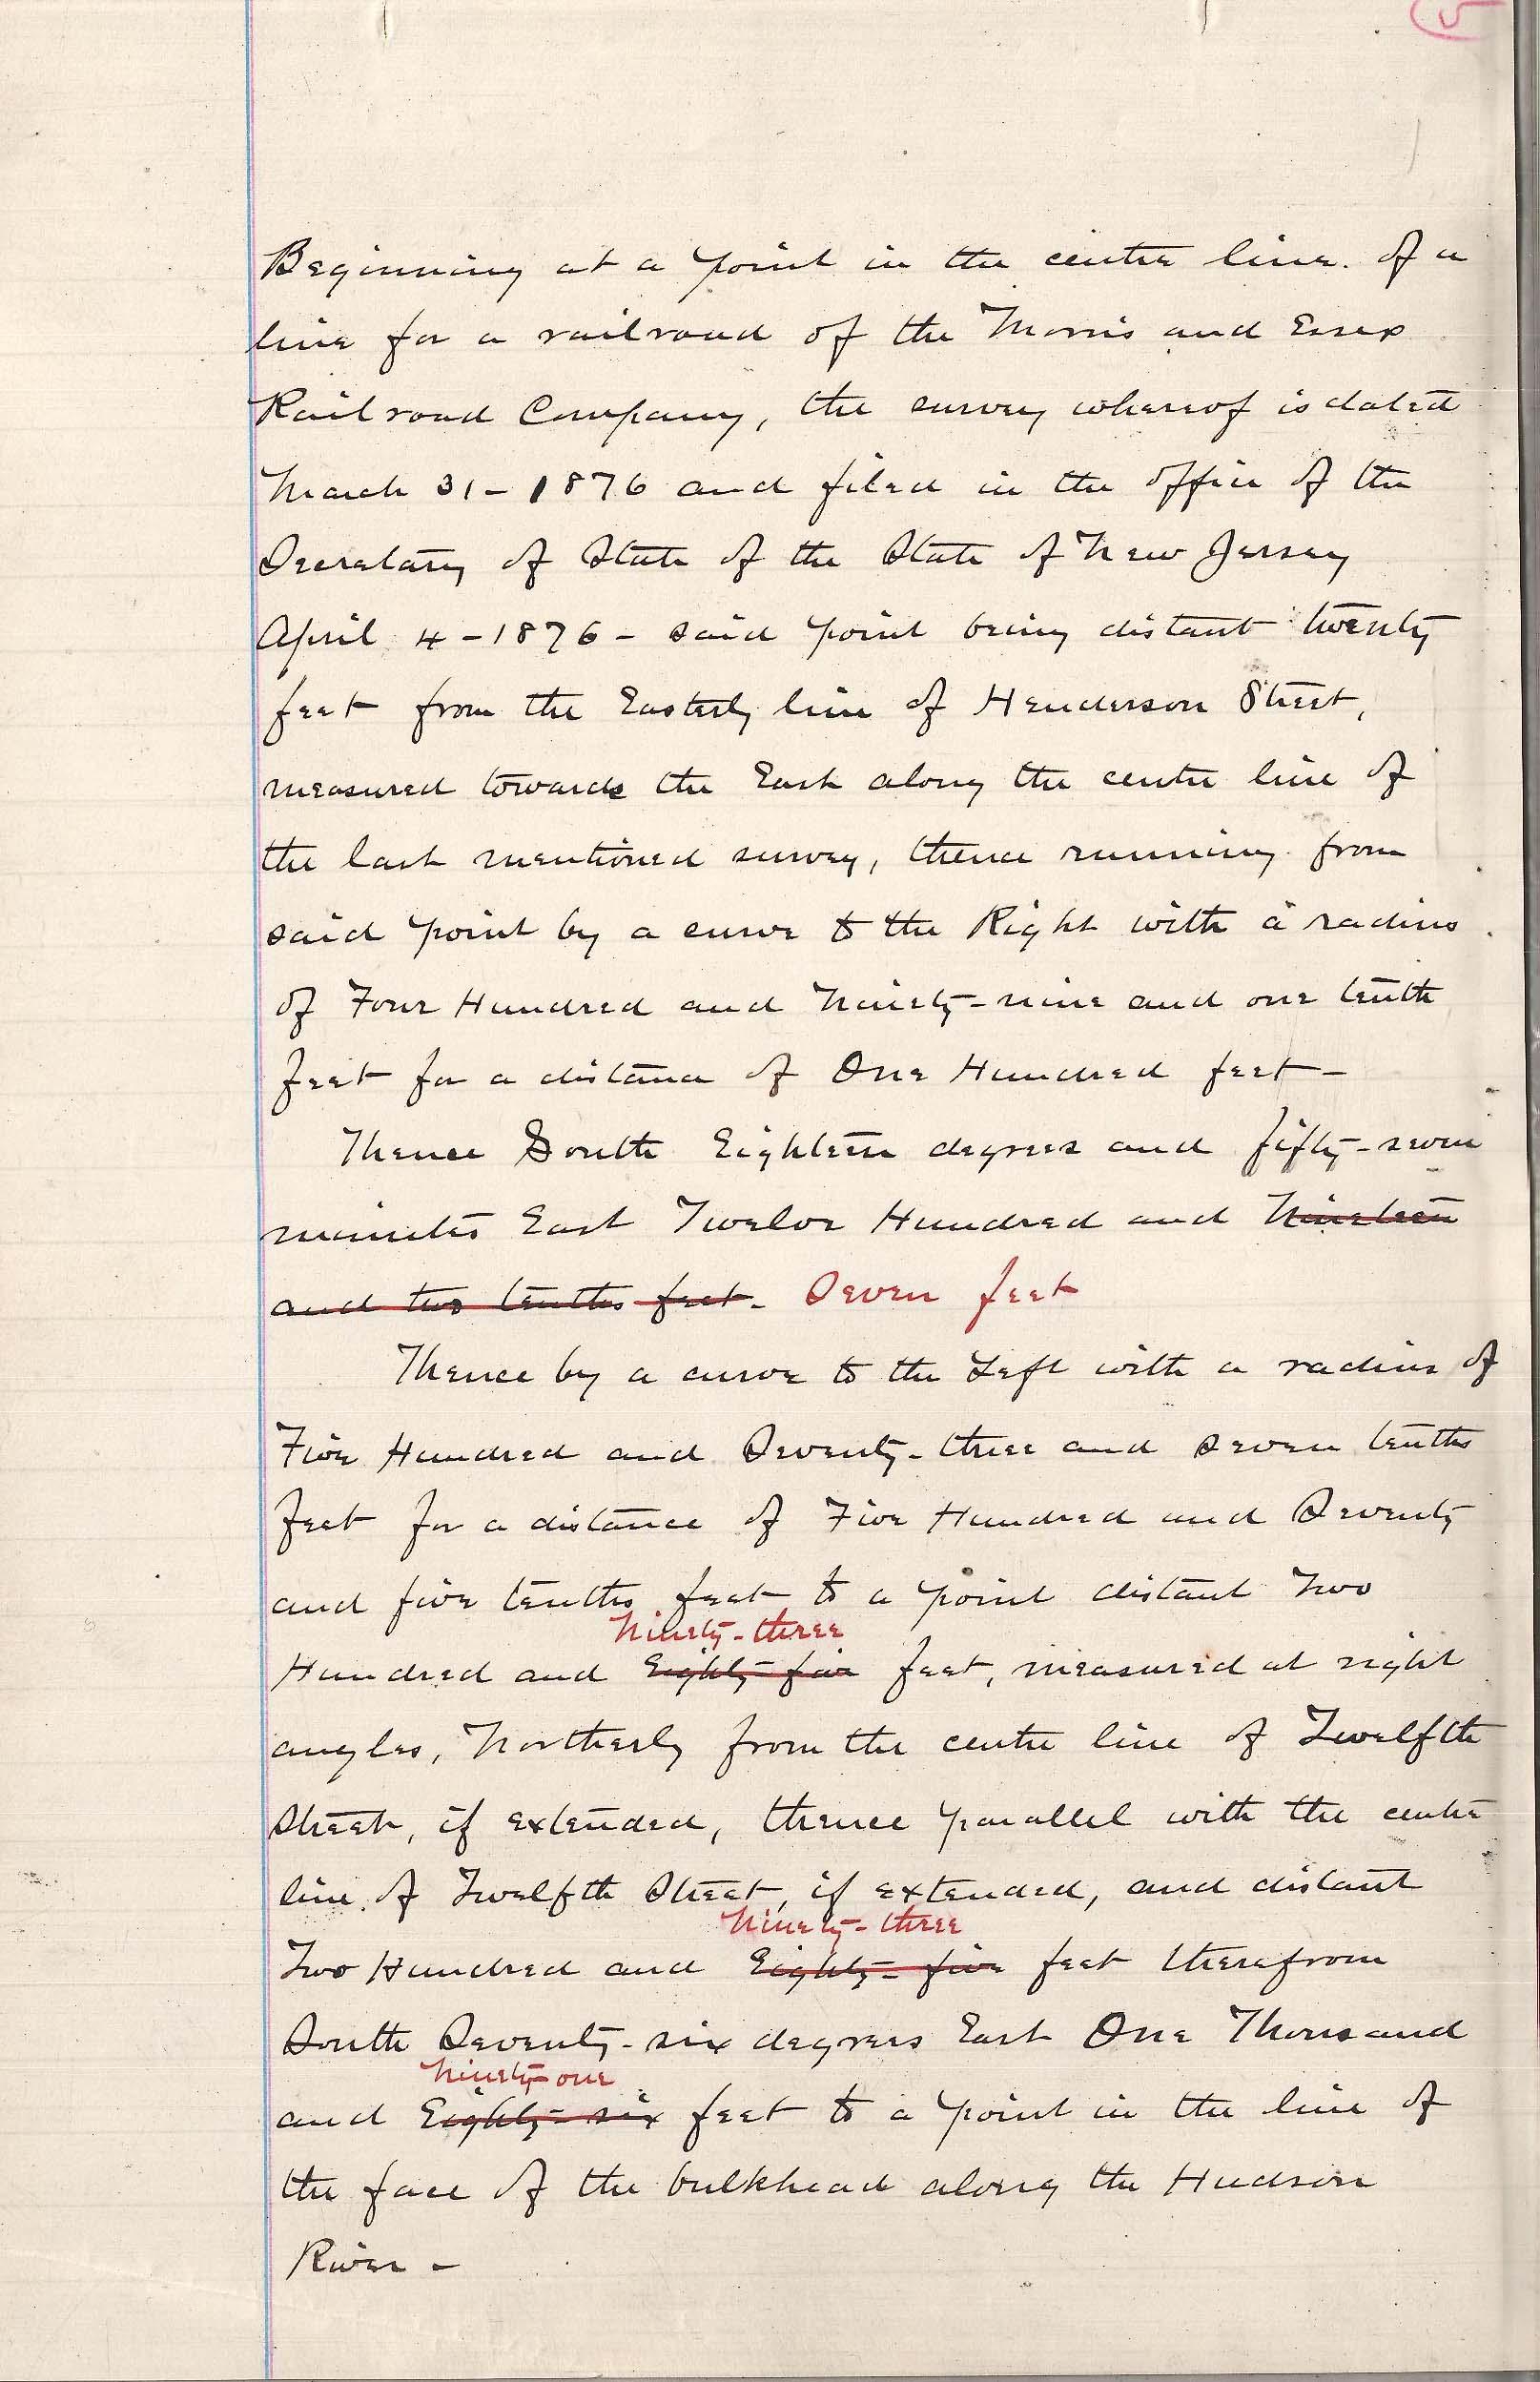 5
Beginning at a point in the centre line. of a
line for a railroad of the Morris and Essex
Railroad Company, the survey whereof is dated
March 31 - 1876 and filed in the office of the
Secretary of State of the State of New Jersey
April 4 - 1876 - said point being distant twenty
feet from the Easterly line of Henderson Street,
measured towards the East along the centre line of
the last mentioned survey, thence running from
said point by a curve to the Right with a radius
of Four Hundred and Ninety-nine and one tenth
feet for a distance of One Hundred feet -
Thence South Eighteen degrees and fifty-seven
minutes East Twelve Hundred and Nineteen
and two tenths feet. Seven feet
Thence by a curve to the Left with a radius of
Five Hundred and Seventy-three and seven tenths
feet for a distance of Five Hundred and Seventy
and five tenths feet to a point distant Two
Ninety-three
Hundred and Eighty-five feet, measured at right
angles, Northerly from the centre line of Twelfth
Street, if extended, thence parallel with the centre
line of Twelfth Street, if extended, and distant
Ninety-three
Two Hundred and Eighty-five feet therefrom
South Seventy-six degrees East One Thousand
Ninety-one
and Eighty-six feet to a point in the line of
the face of the bulkhead along the Hudson
River -